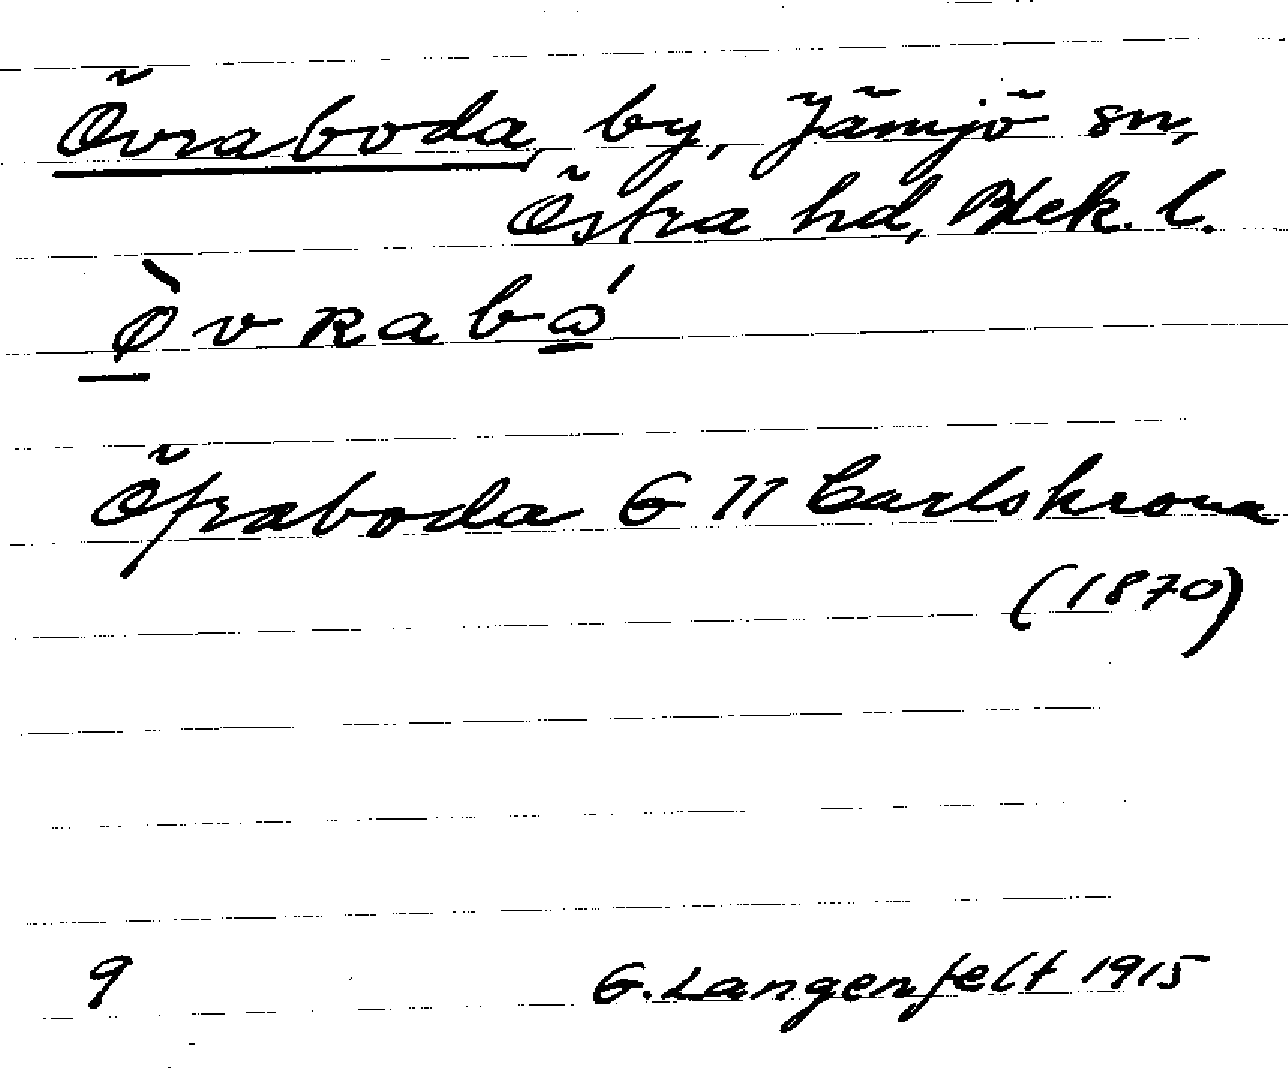 Övraboda, by, Jämjö sn,
Östra hd, Blek. l.
ø̀vRabá
Öfraboda G 11 Carlskrona
(1870)
9 G. Langenfelt 1915